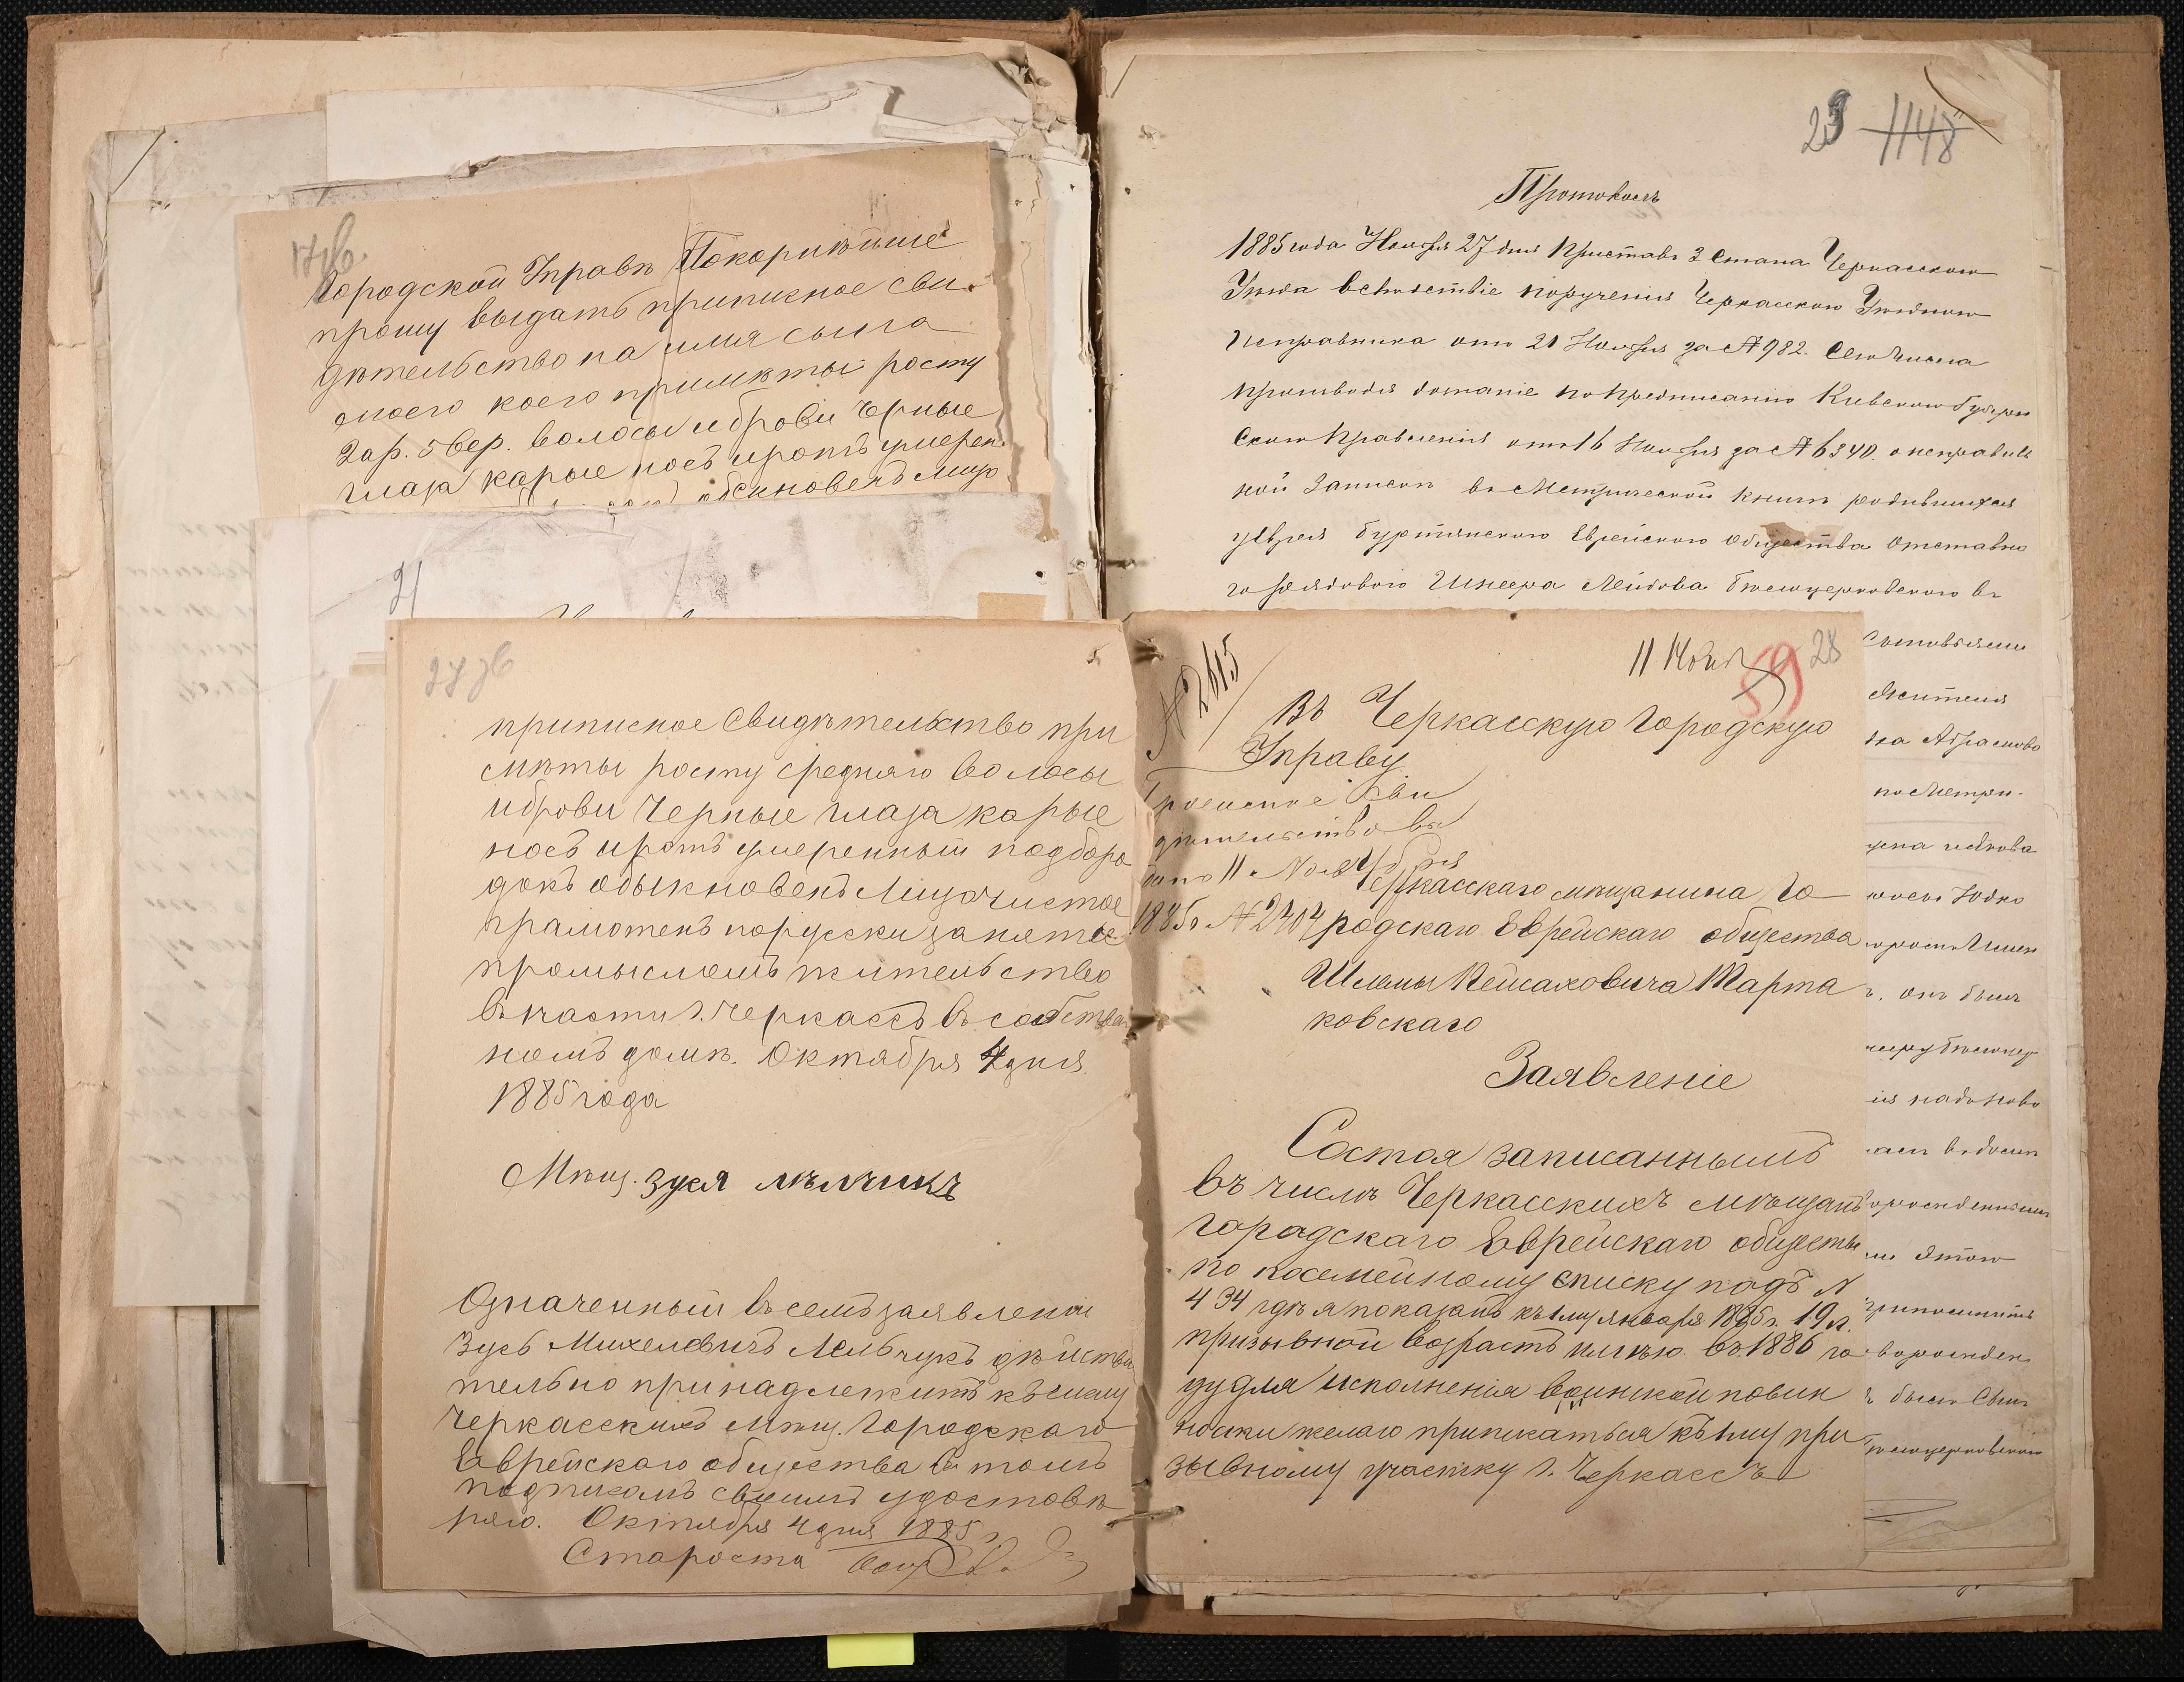 17 об
Городской Управѣ Покорнѣйше
прошу выдать приписное сви
дѣтельство на имя сына
моего коего примѣты росту
2 ар. 5 вер. волосы и брови черные
глаза карые носъ и ротъ умерен
обыкновенъ лицо
21
27 об
приписное свидѣтельство при
мѣты росту средняго волосы
и брови черные глаза карые
носъ и ротъ умеренный подборо
докъ обыкновенъ лицо чистое
грамотенъ порусски занятие
промысломъ жительство
въ части г. Черкассъ въ собствен
номъ домѣ. Октября 4 дня
1885 года
Мѣщ. Зуся
Означенный въ семъ заявлении
Зусь Михелевичъ Мельчукъ дѣйстви
тельно принадлежитъ къ
Черкасскихъ Мѣщ. Городскаго
Еврейскаго общества въ томъ
подписомъ своимъ удостовѣ
ряю. Октября 4 дня 1885 г
Староста
23 1148
Протоколъ
1885 года Ноября 27 дня Приставъ 3 Стана Черкасскаго
Уѣзда вслѣдствіе порученія Черкасскаго Уѣзднаго
Исправника отъ 21 Ноября за № 982. Сего числа
производя дознаніе по предписанію Кіевскаго Губерн
скаго Правленія отъ 16 Ноября за № 6340. о неправиль
ной Записи въ Метрической книгѣ родившихся
у Еврея Буртянскаго Еврейскаго Общества Отставно
го рядового Лейбова Бѣлоцерковскаго въ
жителя
на Абрамова
по Метри-
Юдко
онъ былъ
этого
было
№ 2615
11 Нояб 59 28
Въ Черкасскую Городскую
Управу
Приписное Сви
дѣтельство вы
дано 11 Ноября
1885 г № 2404
Черкасскаго мѣщанина Го
родскаго Еврейскаго общества
Шлемы Пейсаховича Тарта
ковскаго
Заявленіе
Состоя записаннымъ
въ числѣ Черкасскихъ мѣщанъ
городскаго Еврейскаго общества
по посемейному списку подъ №
434 гдѣ я показанъ къ 1му января 1885 г. 19 л.
призывной возрастъ имѣю въ 1886 го
ду для исполненія воинской повин
ности желаю приписаться къ 1му при
зывному участку г. Черкассъ